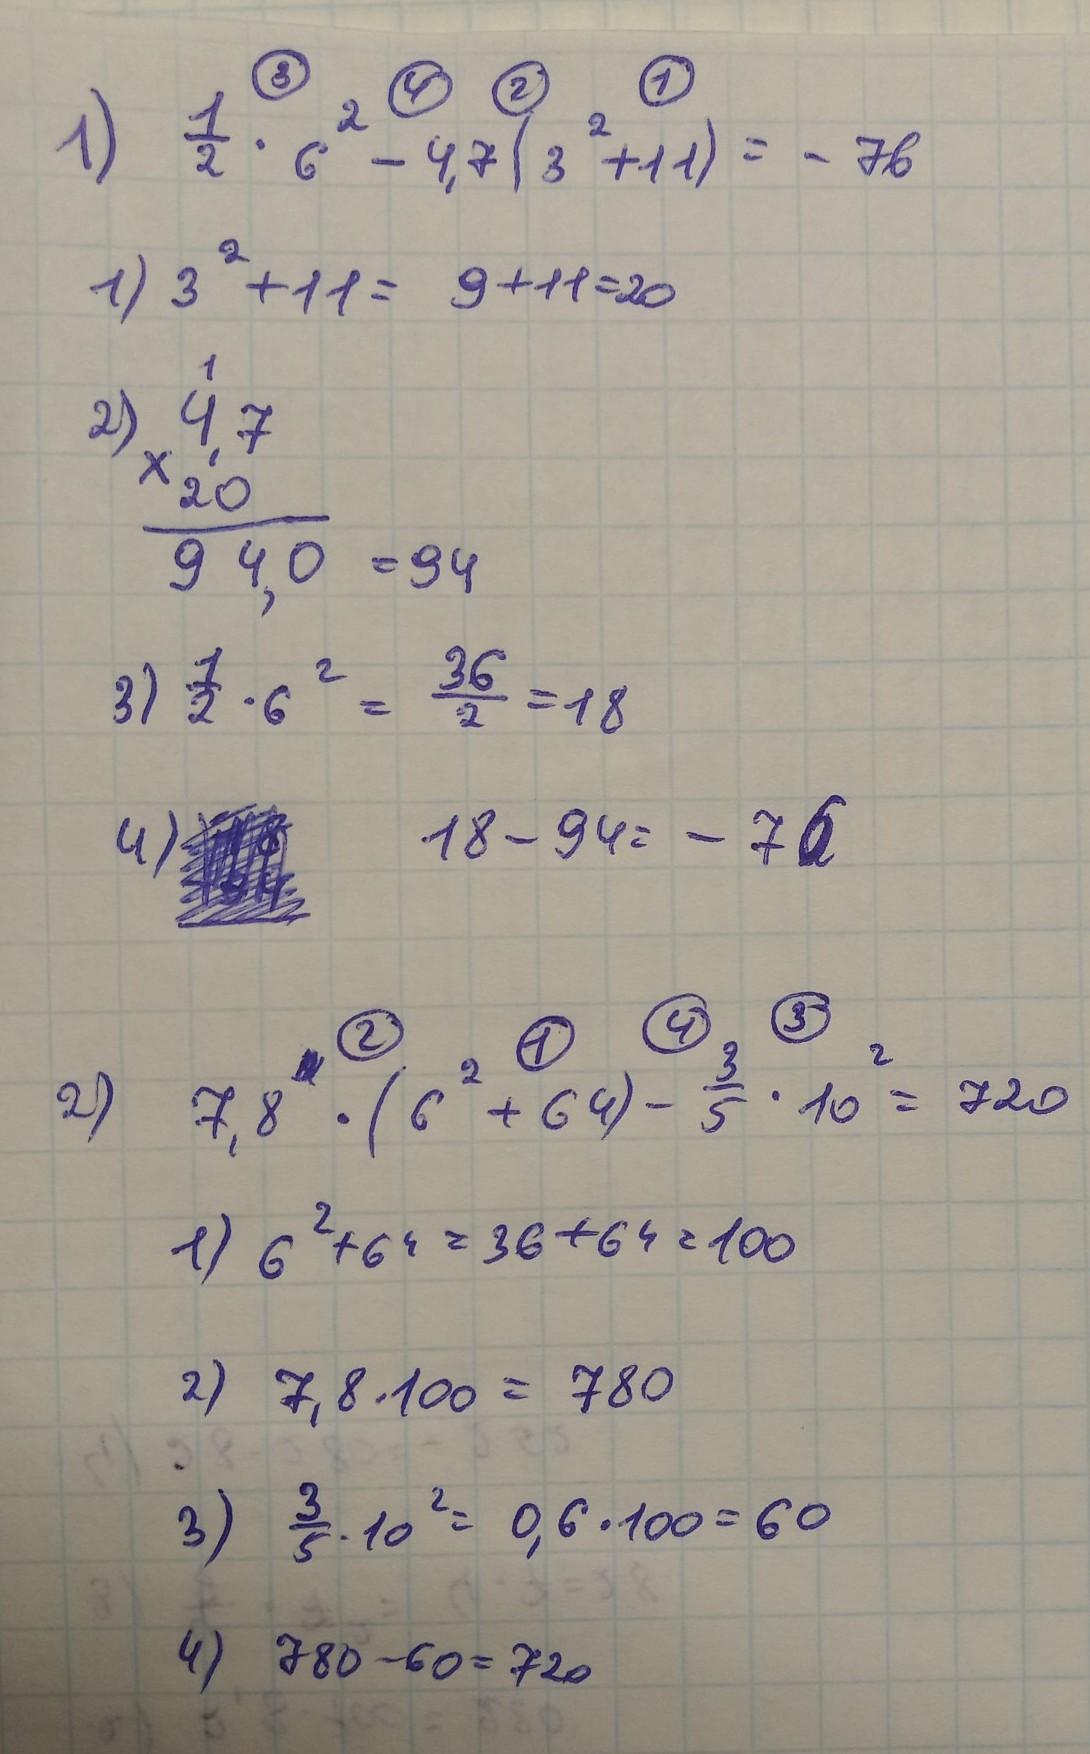 ③ ④ ② ①
1) 1/2 · 6² - 4,7(3²+11) = - 76
1) 3² + 11 = 9+11=20
1
2) 4,7
× 20
94,0 = 94
3) 1/2 · 6² = 36/2 = 18
4) 18 - 94 = - 76
② ① ④ ③
2) 7,8 · (6² + 64) - 3/5 · 10² = 720
1) 6² + 64 = 36 + 64 = 100
2) 7,8 · 100 = 780
3) 3/5 · 10² = 0,6 · 100 = 60
4) 780 - 60 = 720